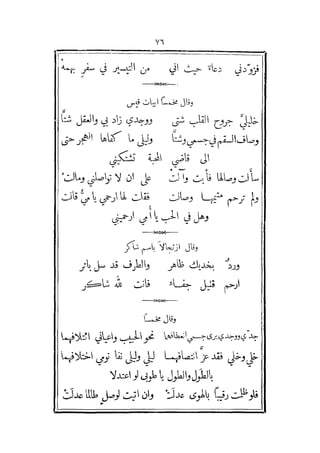 ٧٦
فزوّدني دعاءً حيث اني من التيسير في سفرٍ بهمهْ
وقال مخمسًا ابيات قيس
خليليَّ جروح القلب شتى ووجدي زاد بي والعقل شتَّا
وصاف السقم في جسمي وشتَّا وليلى ما كفاها الهجر حتى
الى قاضي المحبة تشتكيني
سأَلت وصالها فأَبت وآلتْ على ان لا تواصلني ومالتْ
ولم ترحم متيمها وصالت فقلت لها ارحمي يا ميُّ قالت
وهل في الحب يا أُمي ارحميني
وقال ارتجالًا باسم شاكر
وردٌ بخديك ظاهر والطرف قد سل باتر
ارحم قتيل جفاء فانت لله شاكر
وقال مخمسًا
جدّي ووجدي برى جسمي انعطافهما نحو الحبيب واعياني ائتلافهما
خلي وخلي فقد عزَّ انتصافهما ليلي وليلى نفا نومي اختلافهما
بالطَّول والطول يا طوبى لو اعتدلا
فلو ظللت رقيبًا بالهوى عدلَتْ وان اتيت لوصلٍ طالما عدلَتْ